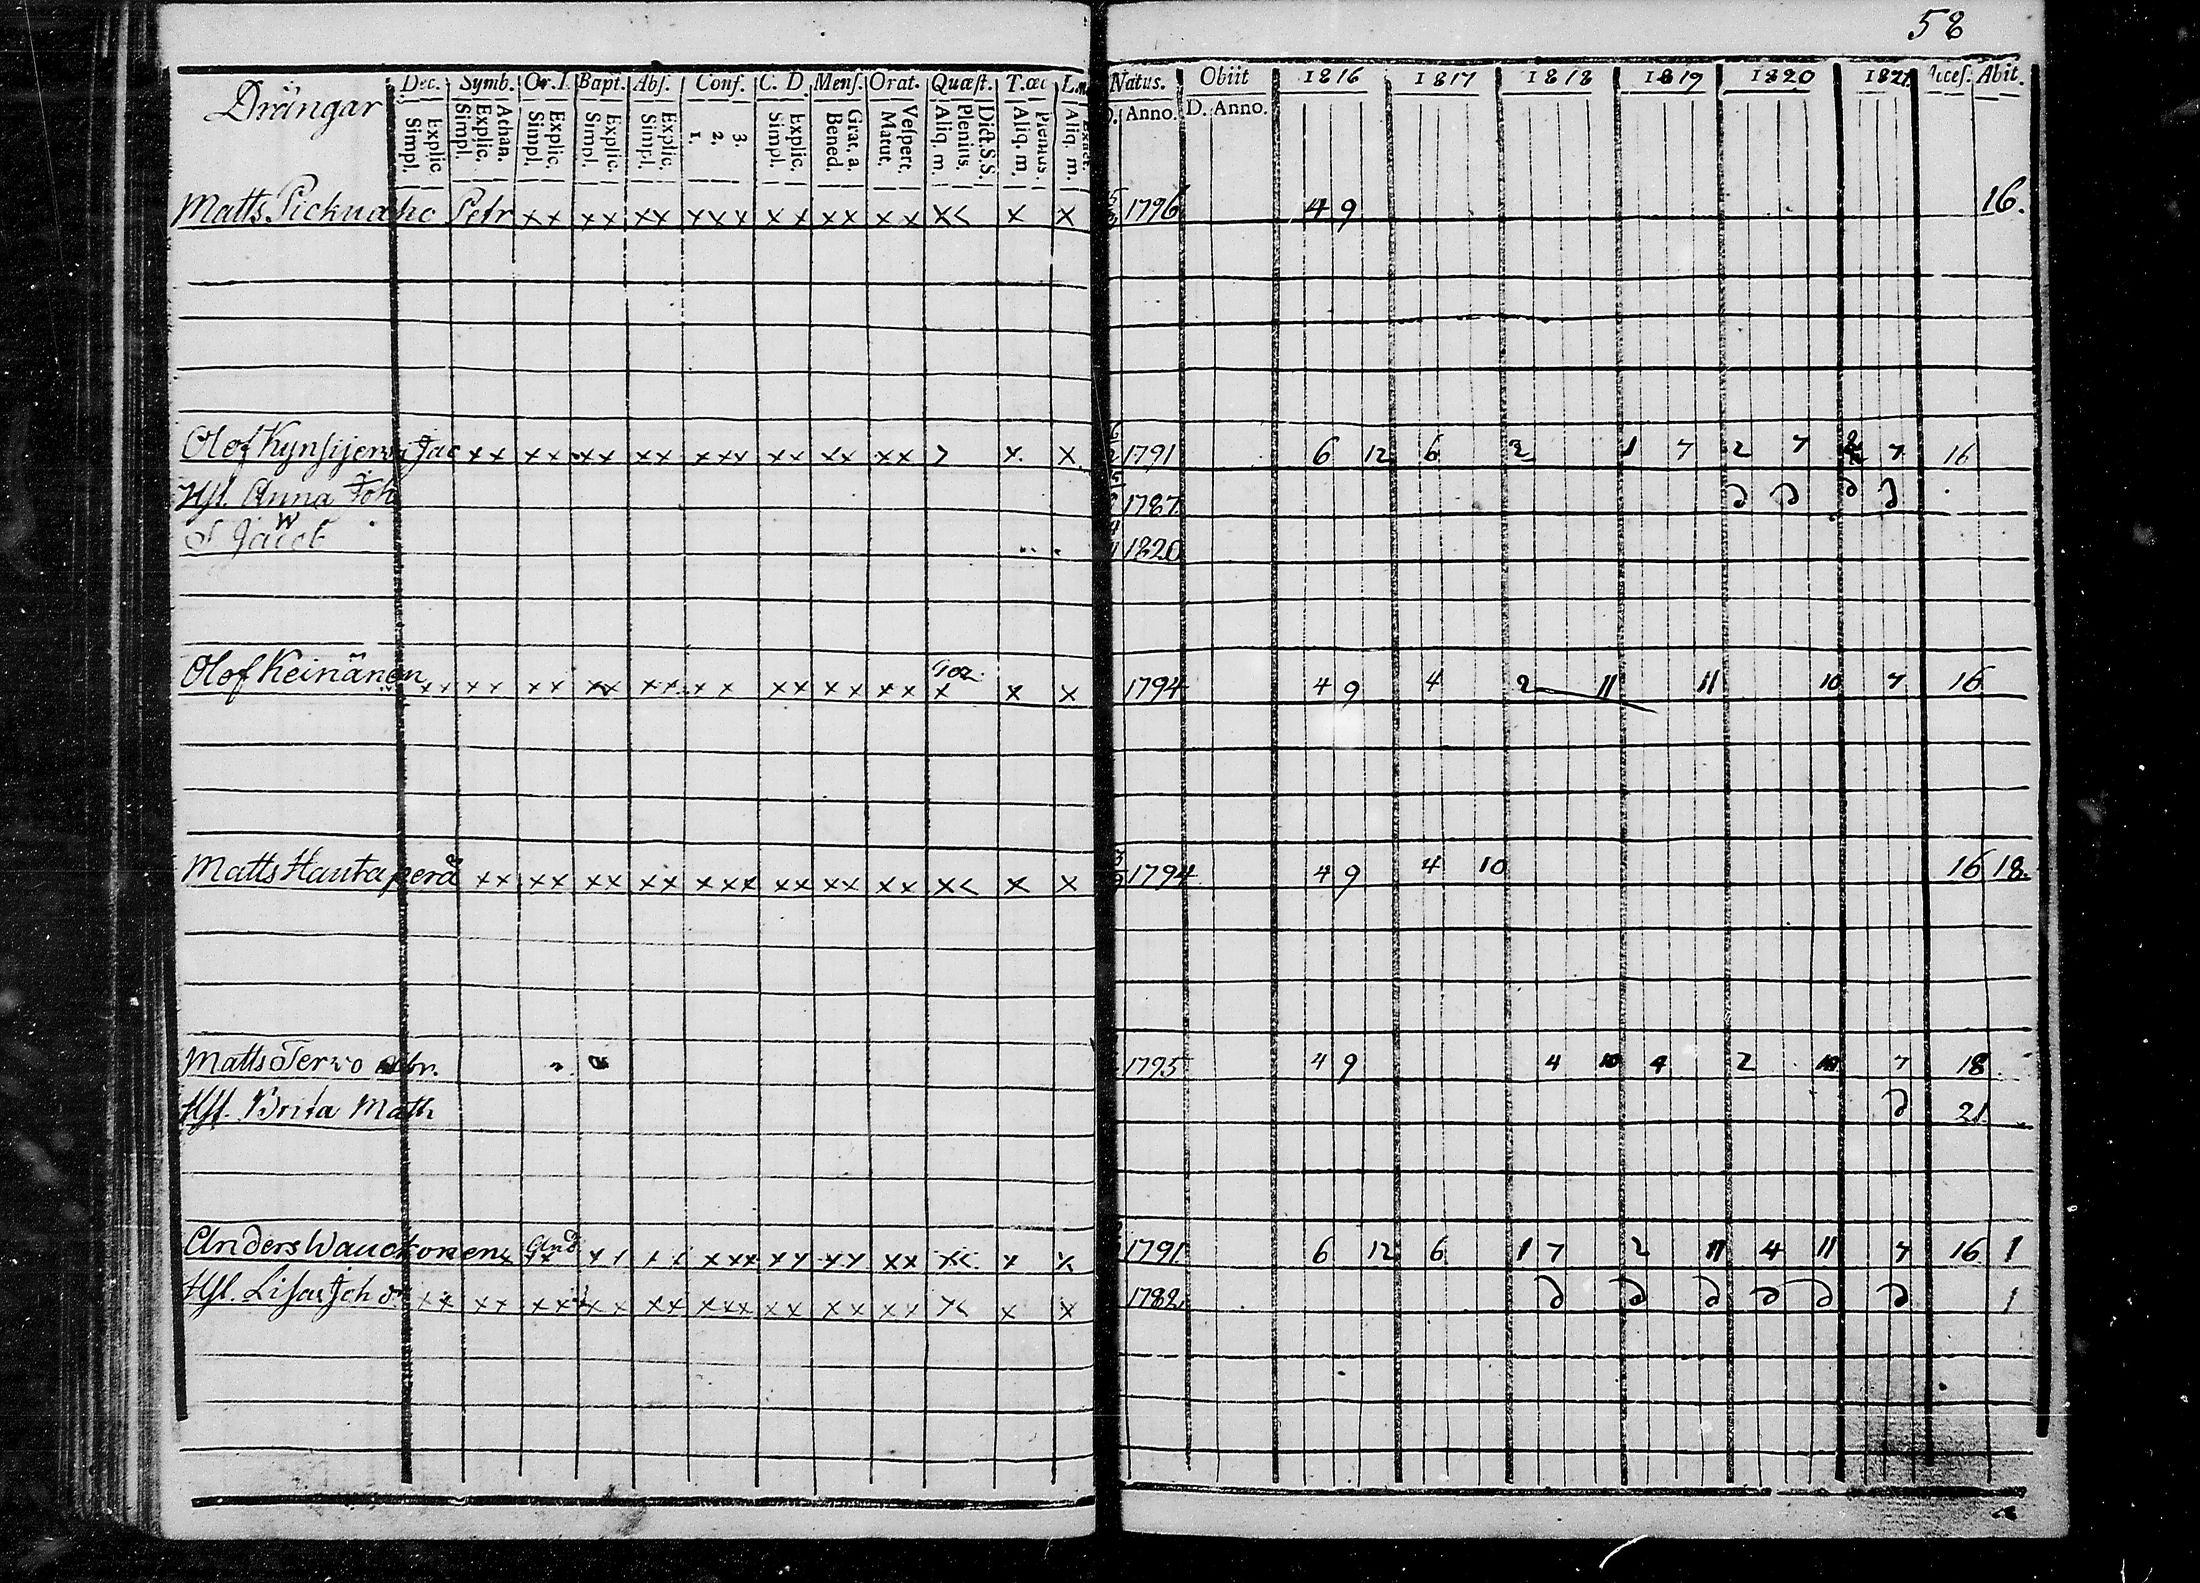 58
Drängar Dec. Symb. Or. D. Bapt. Abs. Conf. C. D. Mens. Orat. Quæst. T. œc Natus. Obiit 1816 1817 1818 1819 1820 1821 Acces. Abit.
Explic. Simpl. Athan. Explic. Simpl. Explic. Simpl. Explic. Simpl. Explic. Simpl. 3. 2. 1. Explic. Simpl. Grat. a. Bened. Vespert. Matut. Dict. S.S. Plenius. Aliq. m. Plenius. Aliq. m. Exact. Aliq. m. D. Anno. D. Anno.
Matts Petr x x x x x x x x x x x x x x x x < x x 1796 4 9 16.
Olof Kynsijerwi Jac x x x x x x x x x x x x x x x x x > x x 1791 6 12 6 2 1 7 2 7 7 16
Hst. Anna Joh 1787 d d d d
S Jacob 1820
Olof Keinänen x x x x x x x x x x x x x x x x x x x x x 1794 4 9 4 2 11 11 10 7 16
Matts Hautaperä x x x x x x x x x x x x x x x x x x < x x 1794 4 9 4 10 16 18.
Matts Terwo Abr. 1795 4 9 4 10 4 2 10 7 18
Hst. Brita Math d 21
Anders Wauckonen And x x x x x x x x x x x x x x x x < x x 1791 6 12 6 1 7 2 11 4 11 7 16 1
Hst. Lisa Joh d x x x x x x x x x x x x x x x x x x x x < x x 1782 d d d d d d 1